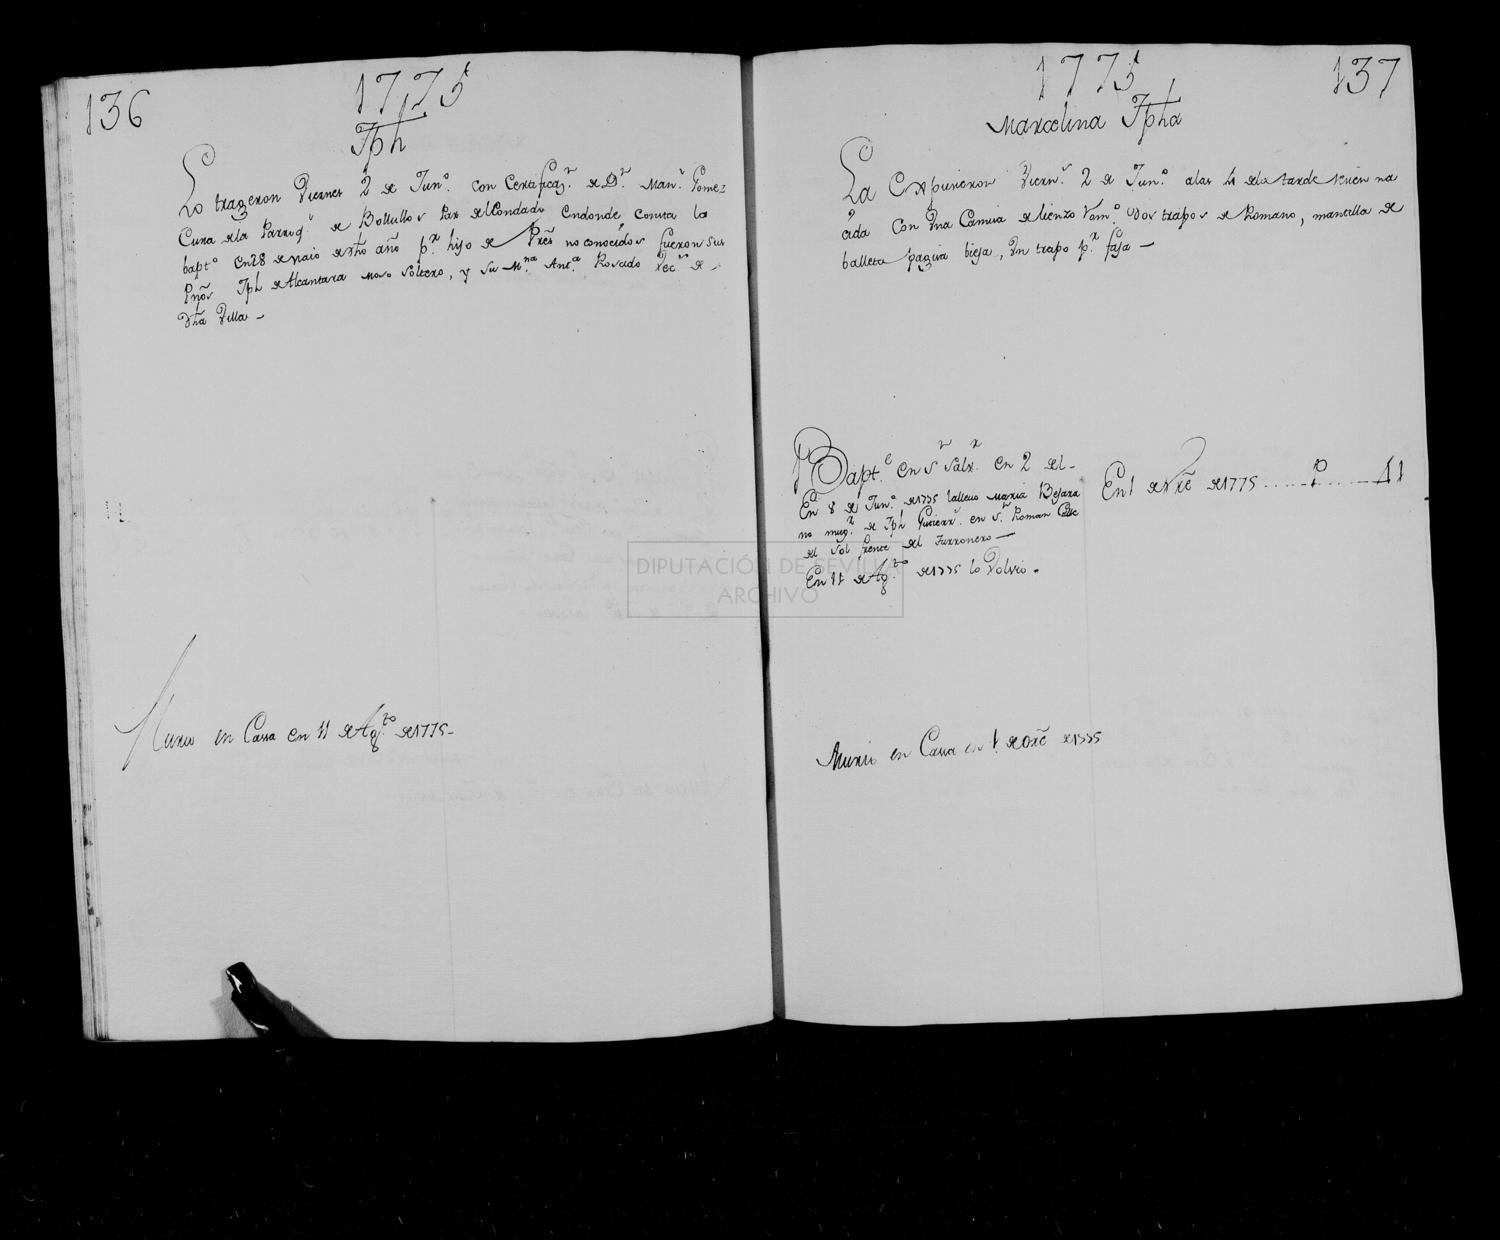 136
1775
Jph
Lo trageron Viernes 2 de Junº. con Certificazⁿ. de Dⁿ. Manˡ. Gomez
Cura dela Parroqˡ. de Bollullos Par del Condado endonde consta lo
baptº en 28 de maio de dho año pʳ hijo de Pres no conocidos fueron sus
Pnos Jph de Alcantara moso soltero, y su Mⁿᵃ Antᵃ Rosado Vecⁿˢ de
dha Villa –
Murio en Cassa en 11 de Agᵗᵒ de 1775-
1775
137
Marcelina Jpha
La Expusieron Viernˢ 2 de Junº. alas 4 dela tarde recien na
cida con Vna Camisa de lienzo dos trapos de Romano, mantilla de
balleta bieja, Vn trapo pʳ. faja –
Baptᵉ. en Sⁿ Salvʳ. en 2 del-
En 8 de Junº. de 1775 la llevo Maria Bejara
no mugʳ. de Jph Gutierrˢ. en Sⁿ Roman Calle
del Sol frente del –
En 11 de Agᵗᵒ de 1775 lo Volvio.
En 1 de de 1775 ...... P ...... 41
Murio en Cassa en 1. de Oxe de 1775
DIPUTACIÓN DE SEVILLA
ARCHIVO